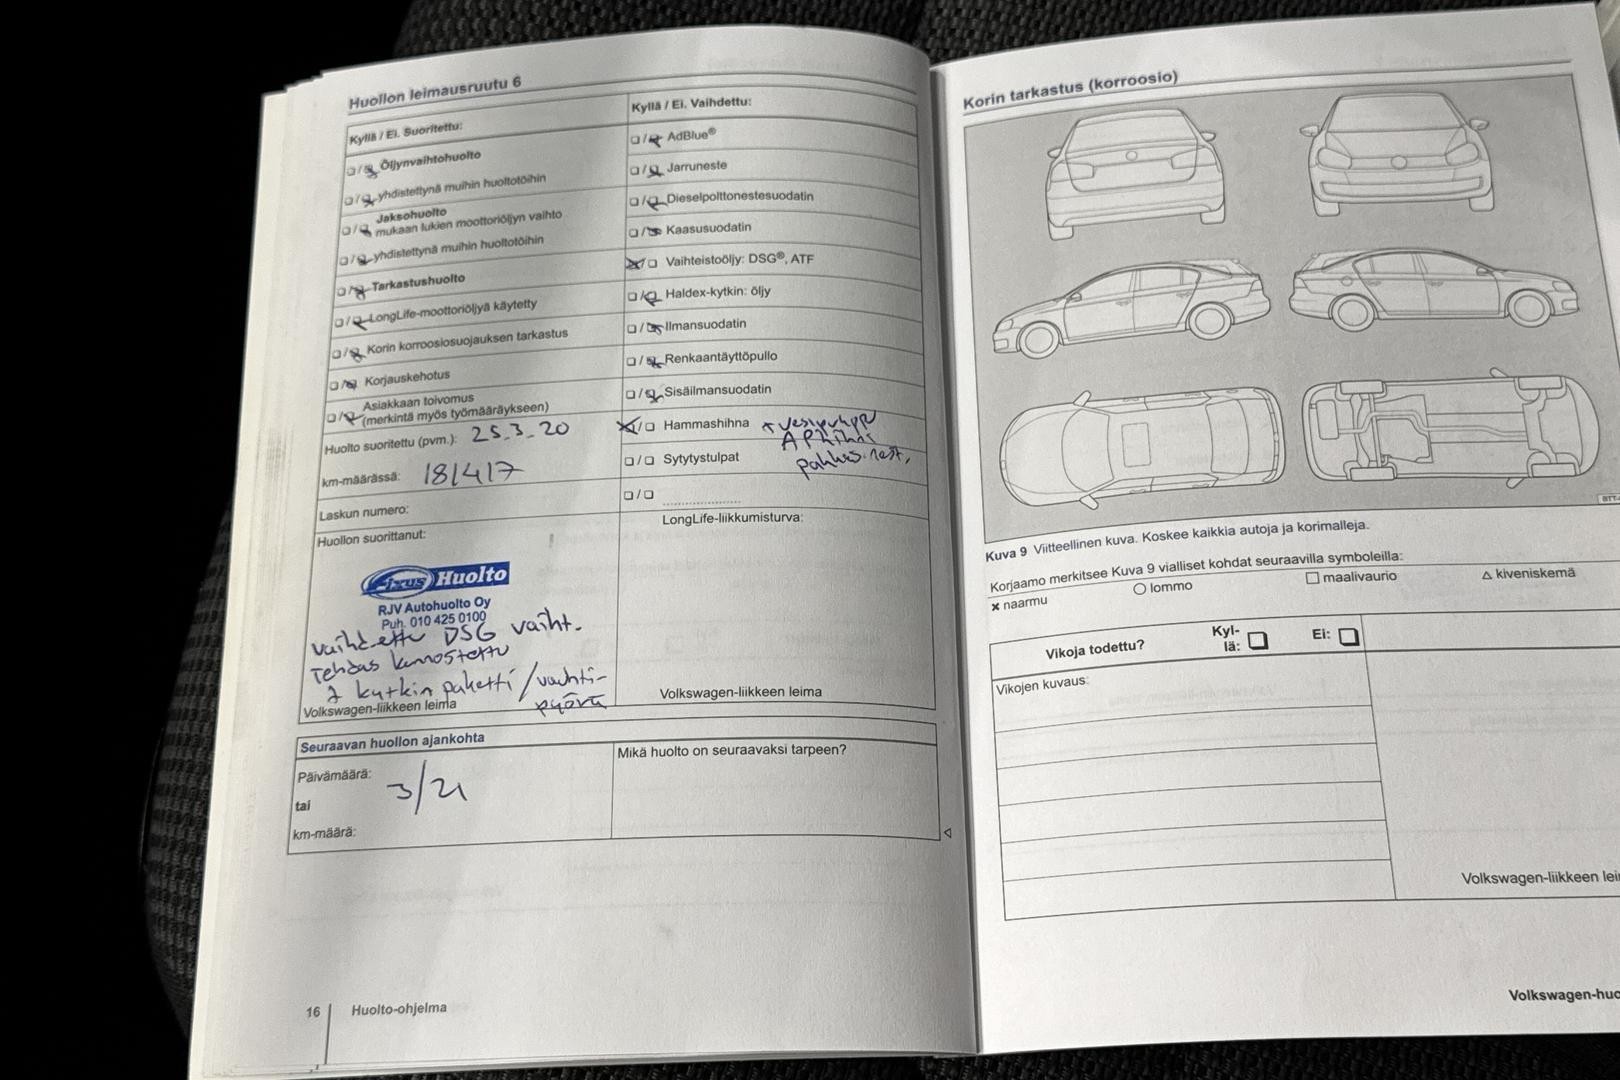 Huollon leimausruutu 6
Kyllä / Ei. Suoritettu:
☐/☒ Öljynvaihtohuolto
☐/☒ yhdistettynä muihin huoltotöihin
☐/☒ Jaksohuolto
mukaan lukien moottoriöljyn vaihto
☐/☒ yhdistettynä muihin huoltotöihin
☐/☒ Tarkastushuolto
☐/☒ LongLife-moottoriöljyä käytetty
☐/☒ Korin korroosiosuojauksen tarkastus
☐/☒ Korjauskehotus
☐/☒ Asiakkaan toivomus
(merkintä myös työmääräykseen)
Huolto suoritettu (pvm.): 25.3.20
km-määrässä: 181417
Laskun numero:
Huollon suorittanut:
Fixus Huolto
RJV Autohuolto Oy
Puh. 010 425 0100
vaihdettu DSG vaiht.
Tehdas kunnostettu
kytkin paketti / vauhti-
pyörä
Volkswagen-liikkeen leima
Kyllä / Ei. Vaihdettu:
☐/☒ AdBlue®
☐/☒ Jarruneste
☐/☒ Dieselpolttonestesuodatin
☐/☒ Kaasusuodatin
☒/☐ Vaihteistoöljy: DSG®, ATF
☐/☒ Haldex-kytkin: öljy
☐/☒ Ilmansuodatin
☐/☒ Renkaantäyttöpullo
☐/☒ Sisäilmansuodatin
☒/☐ Hammashihna + vesipumppu
APhihna
☐/☐ Sytytystulpat pakkas.nest.
☐/☐ ....................
LongLife-liikkumisturva:
Volkswagen-liikkeen leima
Seuraavan huollon ajankohta
Päivämäärä: 3/21
tai
km-määrä:
Mikä huolto on seuraavaksi tarpeen?
16 Huolto-ohjelma
Korin tarkastus (korroosio)
Kuva 9 Viitteellinen kuva. Koskee kaikkia autoja ja korimalleja.
Korjaamo merkitsee Kuva 9 vialliset kohdat seuraavilla symboleilla:
× naarmu ○ lommo □ maalivaurio △ kiveniskemä
Vikoja todettu? Kyl-
lä: ☐ Ei: ☐
Vikojen kuvaus:
Volkswagen-liikkeen